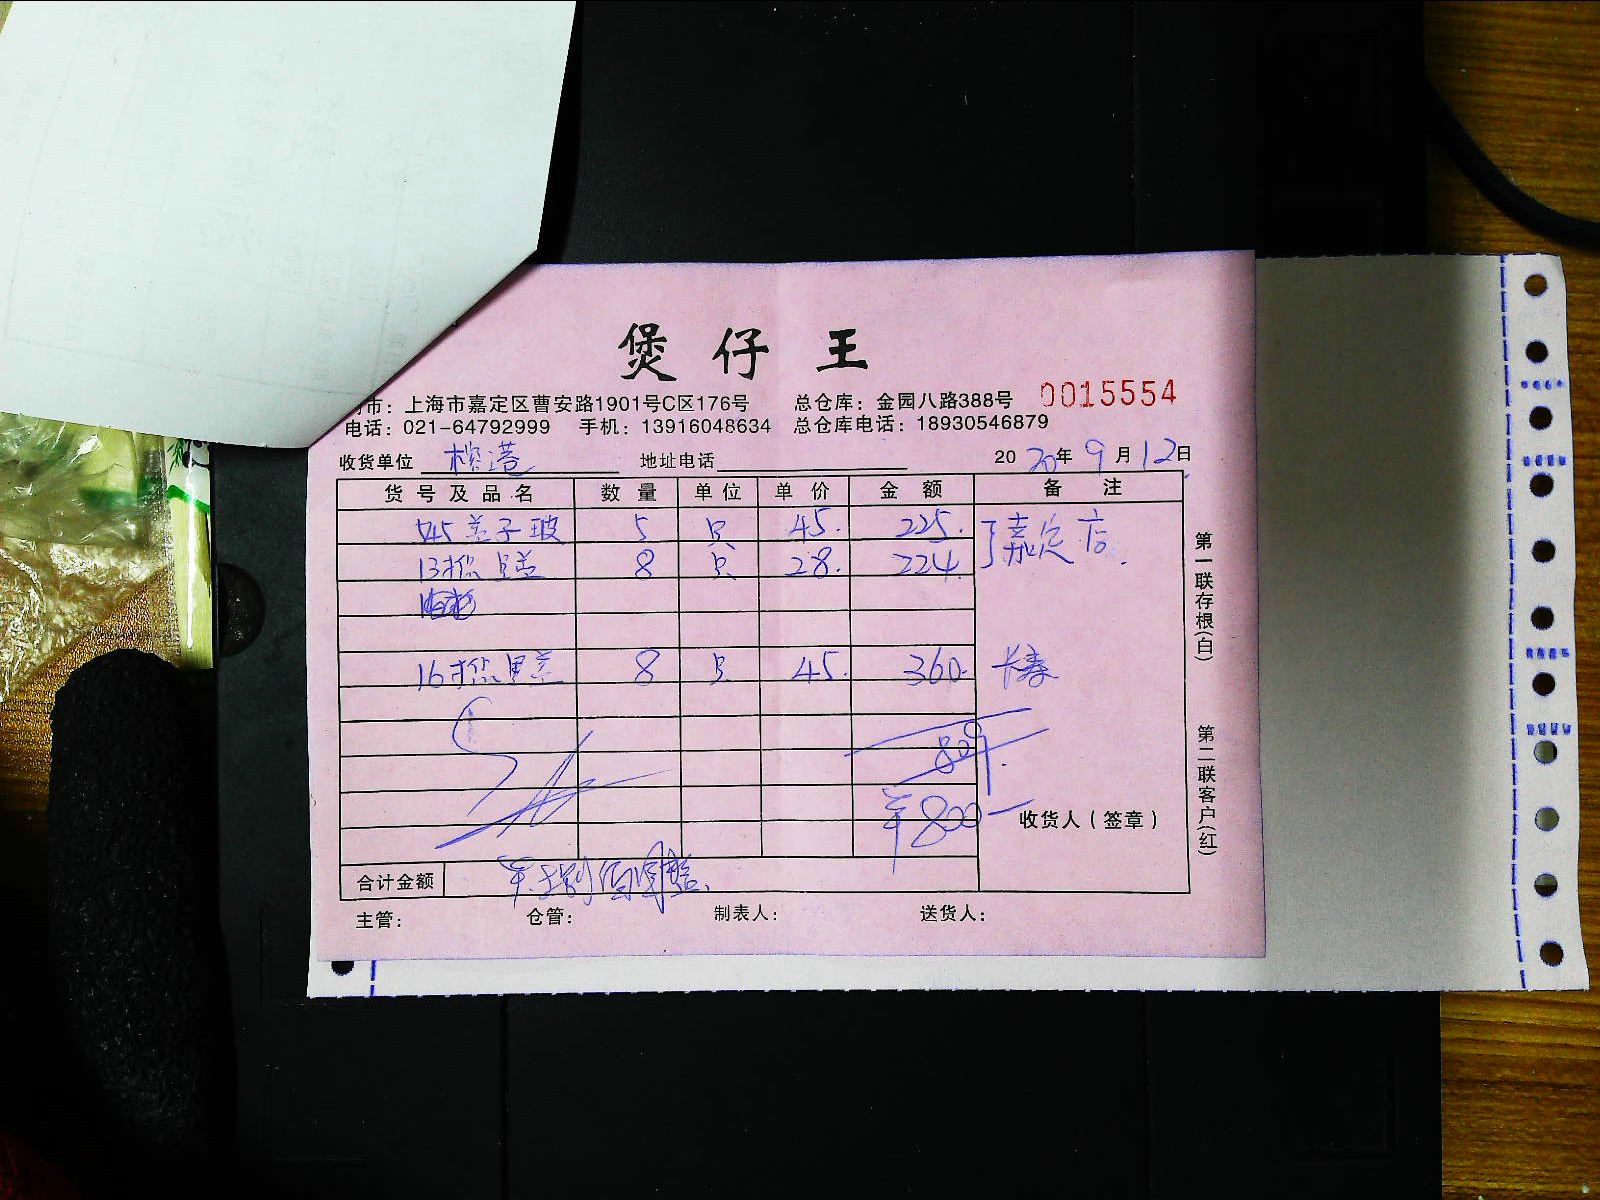 煲仔王
市：上海市嘉定区曹安路1901号C区176号 总仓库：金园八路388号 0015554
电话：021-64792999 手机：13916048634 总仓库电话：18930546879
收货单位 地址电话 2020年9月12日
货号及品名 数量 单位 单价 金额 备注
盖子 玻 5 只 45. 225. 嘉定店.
13 盖 8 只 28. 224.
16 盖 8 只 45. 360. 长寿
809.
¥800-
收货人（签章）
合计金额 佰 整.
主管： 仓管： 制表人： 送货人：
第一联存根(白)
第二联客户(红)